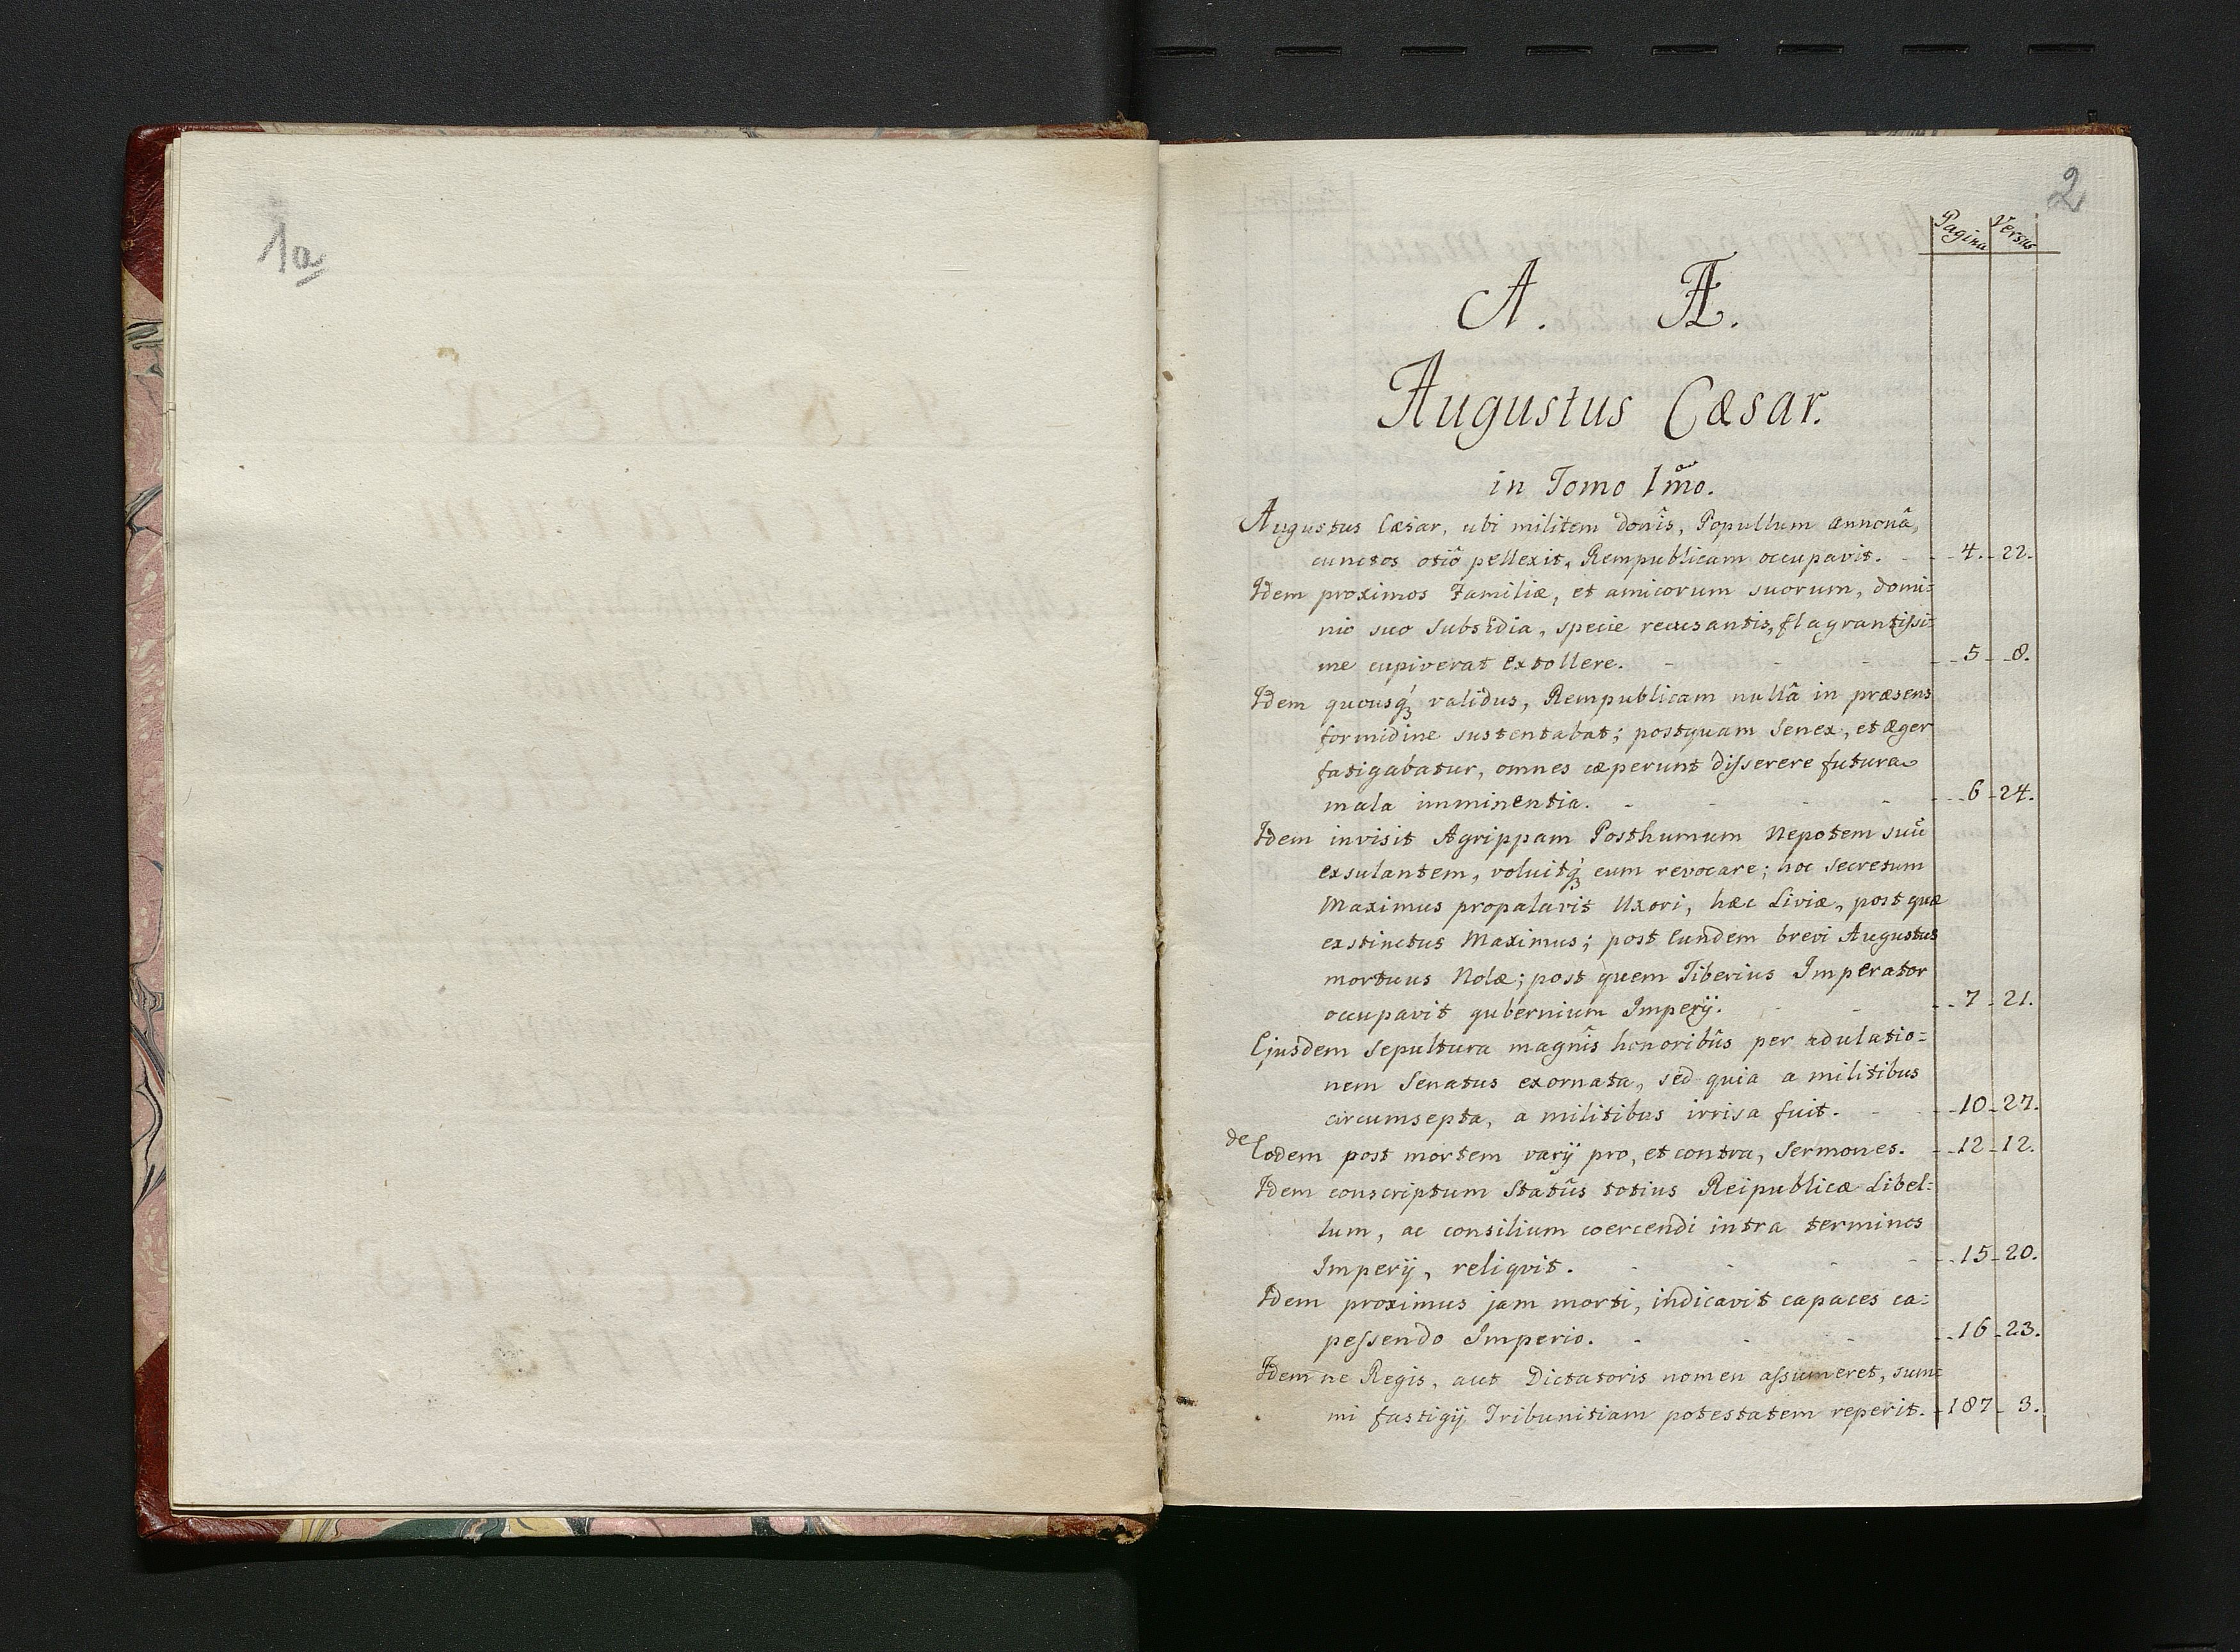 1a
2
Pagina Versus
A. Æ.
Augustus Cæsar.
in Tomo 1mo.
Augustus Cæsar, ubi militem donîs, Popullum annonâ,
cunctos otiô pellexit, Rempublicam occupavit. - 4. - 22.
Idem proximos Familiæ, et amicorum suorum, domi=
nio suo subsidia, specie recusantis, flagrantissi=
me cupiverat extollere. - 5 - 8.
Idem quousq́ȝ validus, Rempublicam nullâ in præsens
formidine sustentabat; postquam Senex, et æger
fatigabatur, omnes cæperunt disserere futura
mala imminentia. - 6 - 24.
Idem invisit Agrippam Posthumum Nepotem suũ
exsulantem, voluitq́ȝ eum revocare; hoc Secretum
Maximus propalavit Uxori, hæc Liviæ, post quæ
exstinctus Maximus; post Eundem brevi Augustus
mortuus Nolæ; post quem Tiberius Imperator
occupavit gubernium Imperÿ. - 7 - 21.
Ejusdem Sepultura magnîs honoribûs per adulatio=
nem Senatus exornata, sed quia a militibus
circumsepta, a militibus irrisa fuit. - 10 - 27.
de Eodem post mortem varÿ pro, et contra, Sermones. - 12 - 12.
Idem conscriptum Statûs totius Reipublicæ Libel=
lum, ac consilium coercendi intra terminos
Imperÿ, reliqvit. - 15 - 20.
Idem proximus jam morti, indicavit capaces ca=
pessendo Imperio. - 16 - 23.
Idem ne Regis, aut Dictatoris nomen assumeret, sum=
mi fastigÿ Tribunitiam potestatem reperit. - 187 - 3.